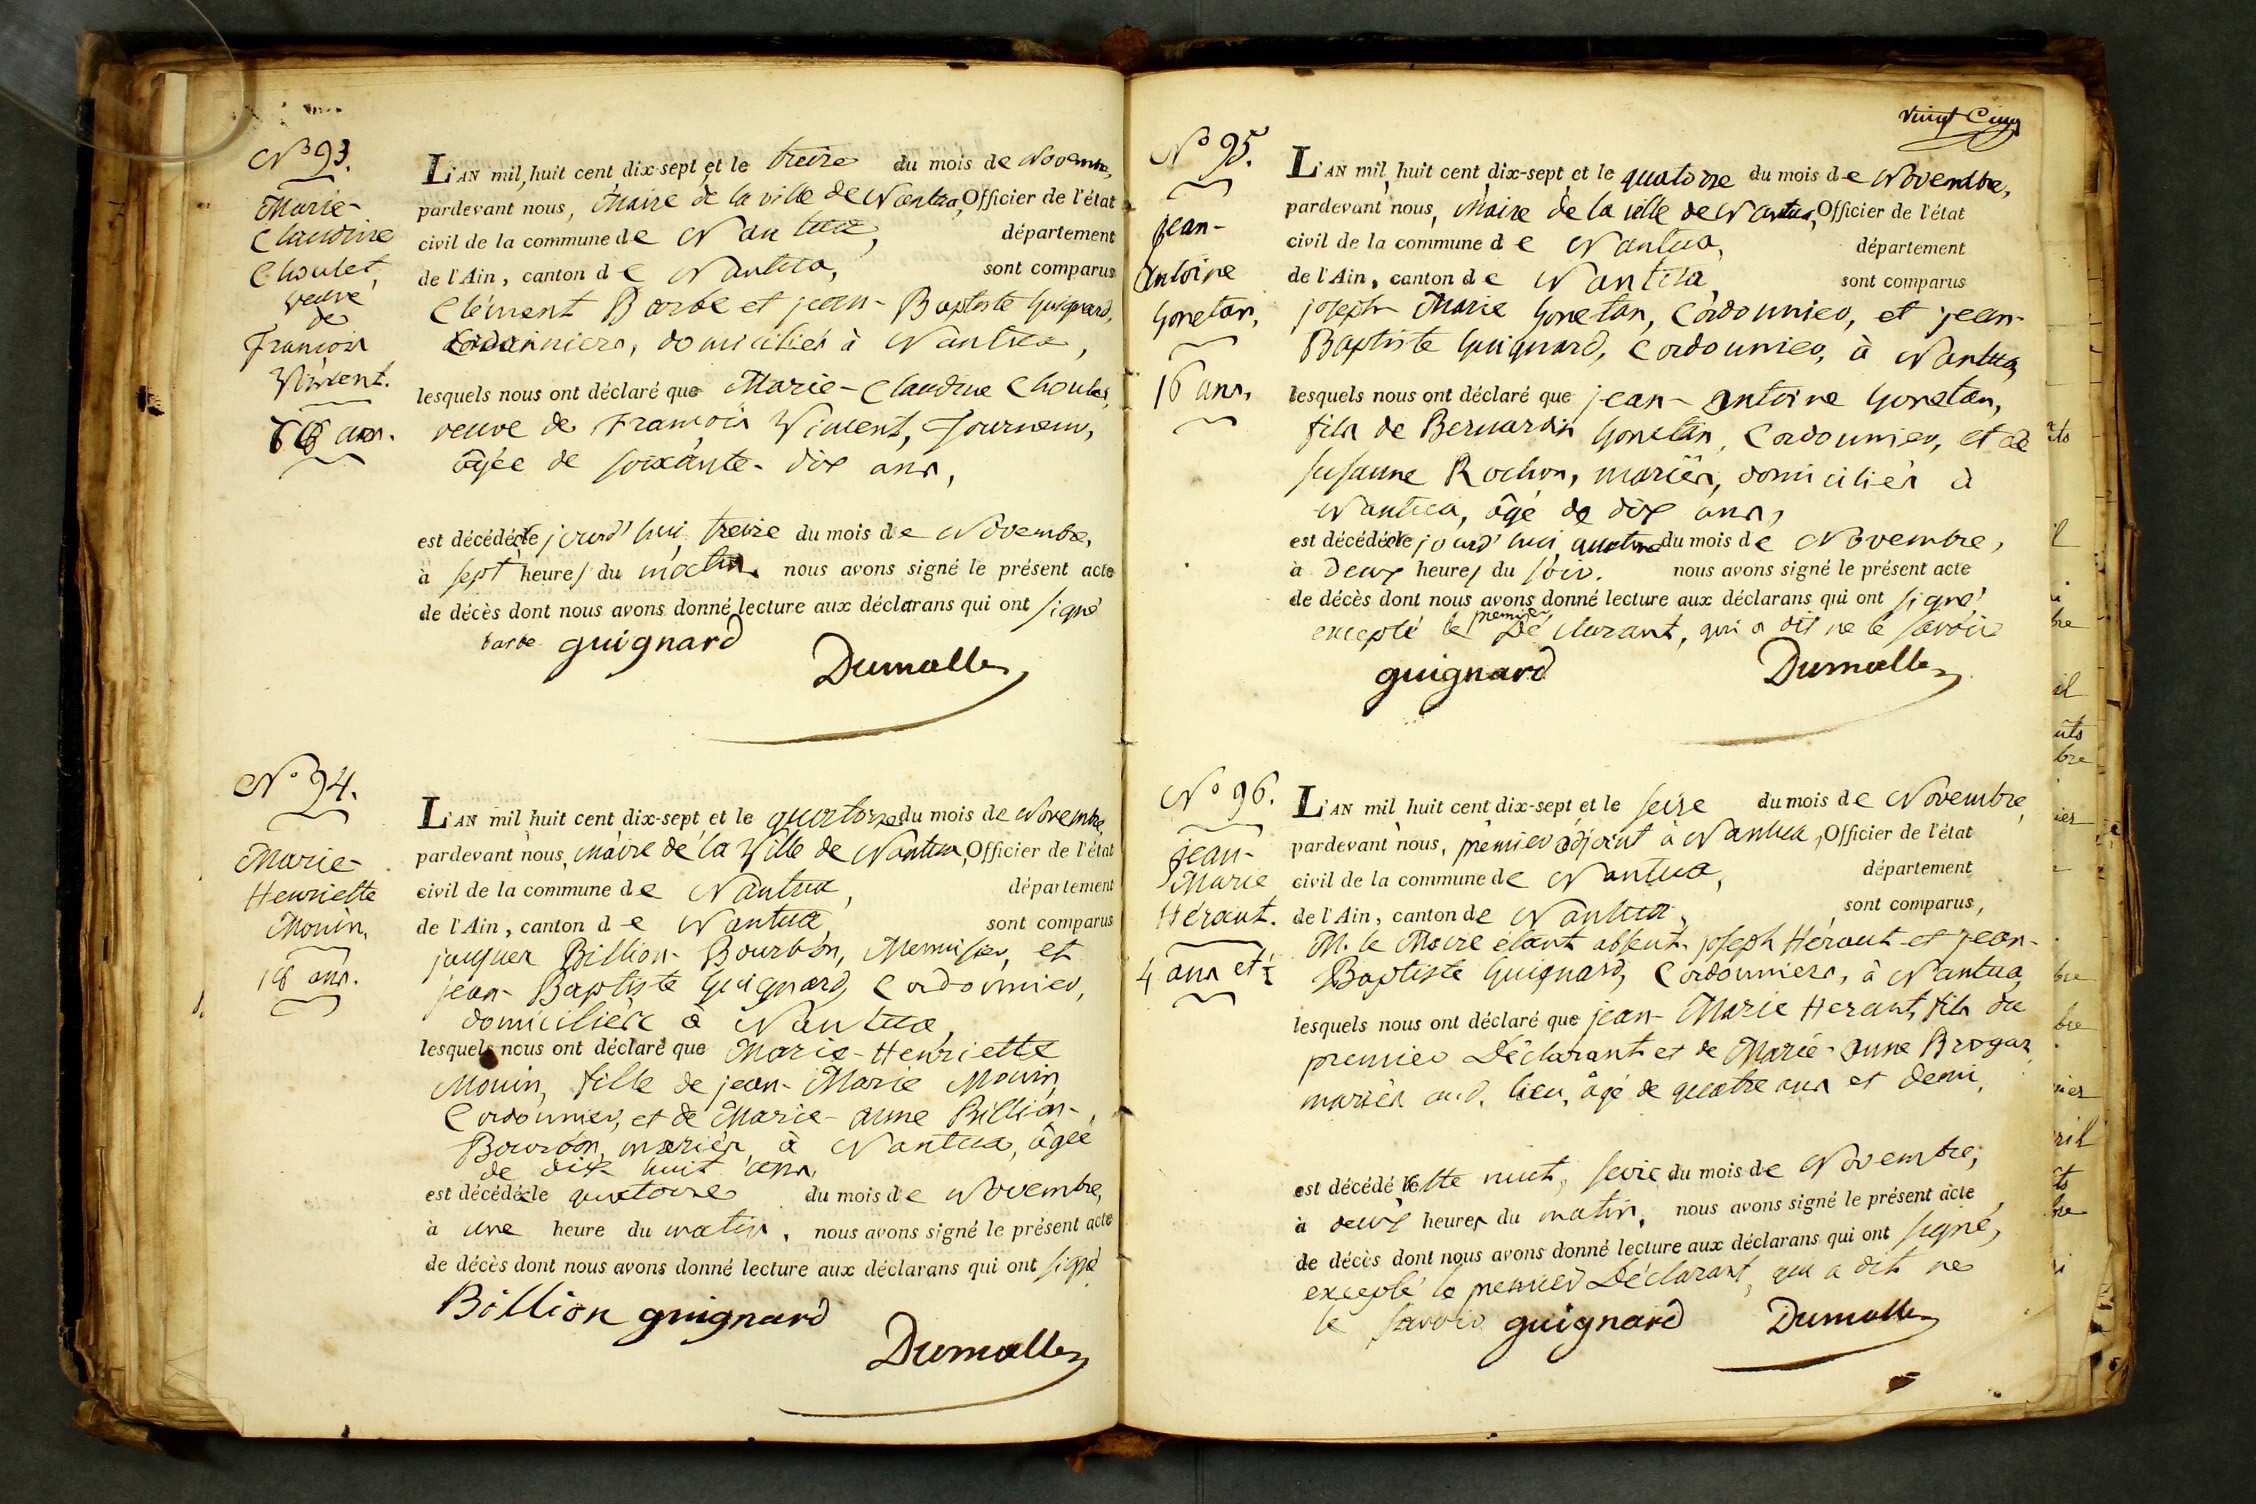 N.º 93.
Marie-
Claudine
Choulet,
veuve
de
François
Vincent.
ans.
L'AN mil, huit cent dix-sept et le treize du mois de Novembre,
pardevant nous, Maire de la ville de Nantua, Officier de l'état
civil de la commune de Nantua, département
de l'Ain, canton de Nantua, sont comparus
Clément Barbe et jean-Baptiste Guignard,
cordonniers, domiciliés à Nantua,
lesquels nous ont déclaré que Marie-Claudine Choulet,
veuve de François Vincent, Tourneur,
âgée de soixante-dix ans,
est décédée ce jourd'hui treize du mois de Novembre,
à sept heures du matin. nous avons signé le présent acte
de décès dont nous avons donné lecture aux déclarans qui ont signé
barbe guignard
Dumolle
N.º 94.
Marie-
Henriette
Monin,
18 ans.
L'AN mil huit cent dix-sept et le quatorze du mois de Novembre,
pardevant nous, maire de la Ville de Nantua, Officier de l'état
civil de la commune de Nantua, département
de l'Ain, canton de Nantua, sont comparus
jacques Billion-Bourbon, Menuisier, et
jean-Baptiste Guignard, Cordonnier,
domiciliés à Nantua,
lesquels nous ont déclaré que Marie-Henriette
Monin, fille de jean-Marie Monin,
Cordonnier, et de Marie-anne Billion-
Bourbon, mariés à Nantua, âgée
de dix huit ans,
est décédée le quatorze du mois de Novembre,
à une heure du matin. nous avons signé le présent acte
de décès dont nous avons donné lecture aux déclarans qui ont signé
Billion guignard
Dumolle
vingt Cinq
N.º 95.
jean-
Antoine
Gonetan,
16 ans.
L'AN mil huit cent dix-sept et le quatorze du mois de Novembre,
pardevant nous, Maire de la ville de Nantua, Officier de l'état
civil de la commune de Nantua, département
de l'Ain, canton de Nantua, sont comparus
joseph Marie Gonetan, Cordonnier, et jean-
Baptiste Guignard, Cordonnier, à Nantua,
lesquels nous ont déclaré que jean-antoine Gonetan,
fils de Bernardin Gonetan, Cordonnier, et de
susanne Rochon, mariés, domiciliés à
Nantua, âgé de dix ans,
est décédé ce jourd'hui quatorze du mois de Novembre,
à deux heures du soir. nous avons signé le présent acte
de décès dont nous avons donné lecture aux déclarans qui ont signé,
excepté le premier Déclarant, qui a dit ne le savoir
guignard Dumolle
N.º 96.
jean-
Marie
Héraut.
4 ans et ½
L'AN mil huit cent dix-sept et le seize du mois de Novembre,
pardevant nous, premier adjoint à Nantua, Officier de l'état
civil de la commune de Nantua, département
de l'Ain, canton de Nantua, sont comparus,
M. le Maire étant absent, joseph Héraut et jean-
Baptiste Guignard, Cordonniers, à Nantua,
lesquels nous ont déclaré que jean-Marie Heraut, fils du
premier Déclarant et de Marie-anne Brogar,
mariés aud. lieu, âgé de quatre ans et demi,
est décédé cette nuit, seize du mois de Novembre,
à deux heures du matin, nous avons signé le présent acte
de décès dont nous avons donné lecture aux déclarans qui ont signé,
excepté le premier Déclarant, qui a dit ne
le savoir guignard Dumolle